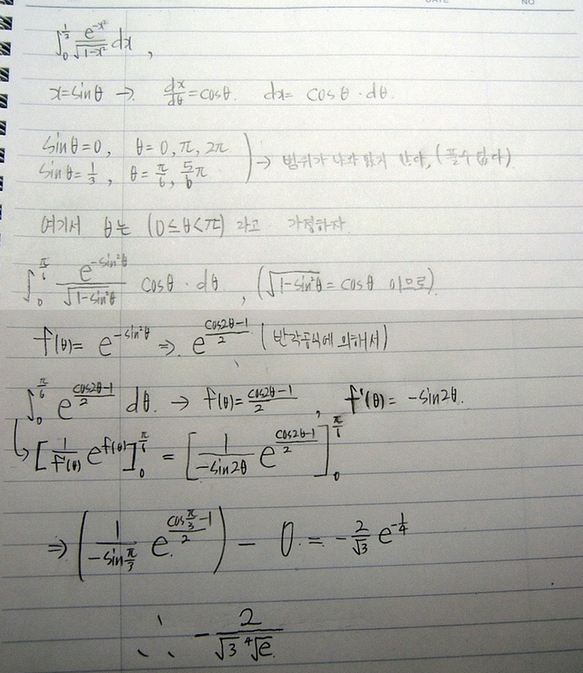 ∫₀^{1/2} e^{-x²}/√(1-x²) dx ,
x=sinθ → dx/dθ=cosθ. dx= cosθ·dθ.
sinθ=0, θ=0, π, 2π
sinθ=1/3, θ=π/6, 5/6π → 범위가 나와 맞지 한다, (풀수 없다)
여기서 θ는 (0≤θ<π) 라고 가정하자
∫₀^{π/6} e^{-sin²θ}/√(1-sin²θ) cosθ·dθ , (√(1-sin²θ) = cosθ 이므로)
f(θ)= e^{-sin²θ} ⇒ e^{(cos2θ-1)/2} (반각공식에 의해서)
∫₀^{π/6} e^{(cos2θ-1)/2} dθ. → f(θ)=(cos2θ-1)/2 , f'(θ) = -sin2θ.
↳ [1/f'(θ) e^{f(θ)}]₀^{π/6} = [1/(-sin2θ) e^{(cos2θ-1)/2}]₀^{π/6}
⇒ (1/(-sin π/3) e^{(cos π/3 -1)/2}) - 0 = -2/√3 e^{-1/4}
∴ -2/(√3 ⁴√e)